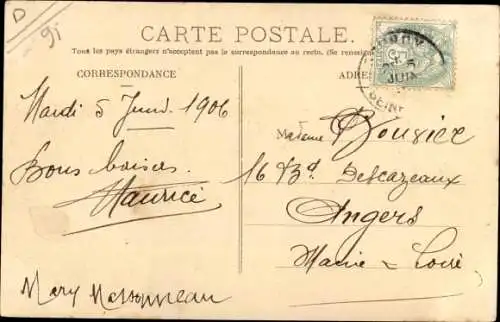 D
91
CARTE POSTALE.
Tous les pays étrangers n'acceptent pas la correspondance au recto. (Se renseigner
CORRESPONDANCE
ADRES
5
JUIN
SEINE
Mardi 5 Juin 1906
Bons baisers.
Maurice
Mary Massonneau
Madame Bouvier
16 Bd Descazeaux
Angers
Maine-Loire